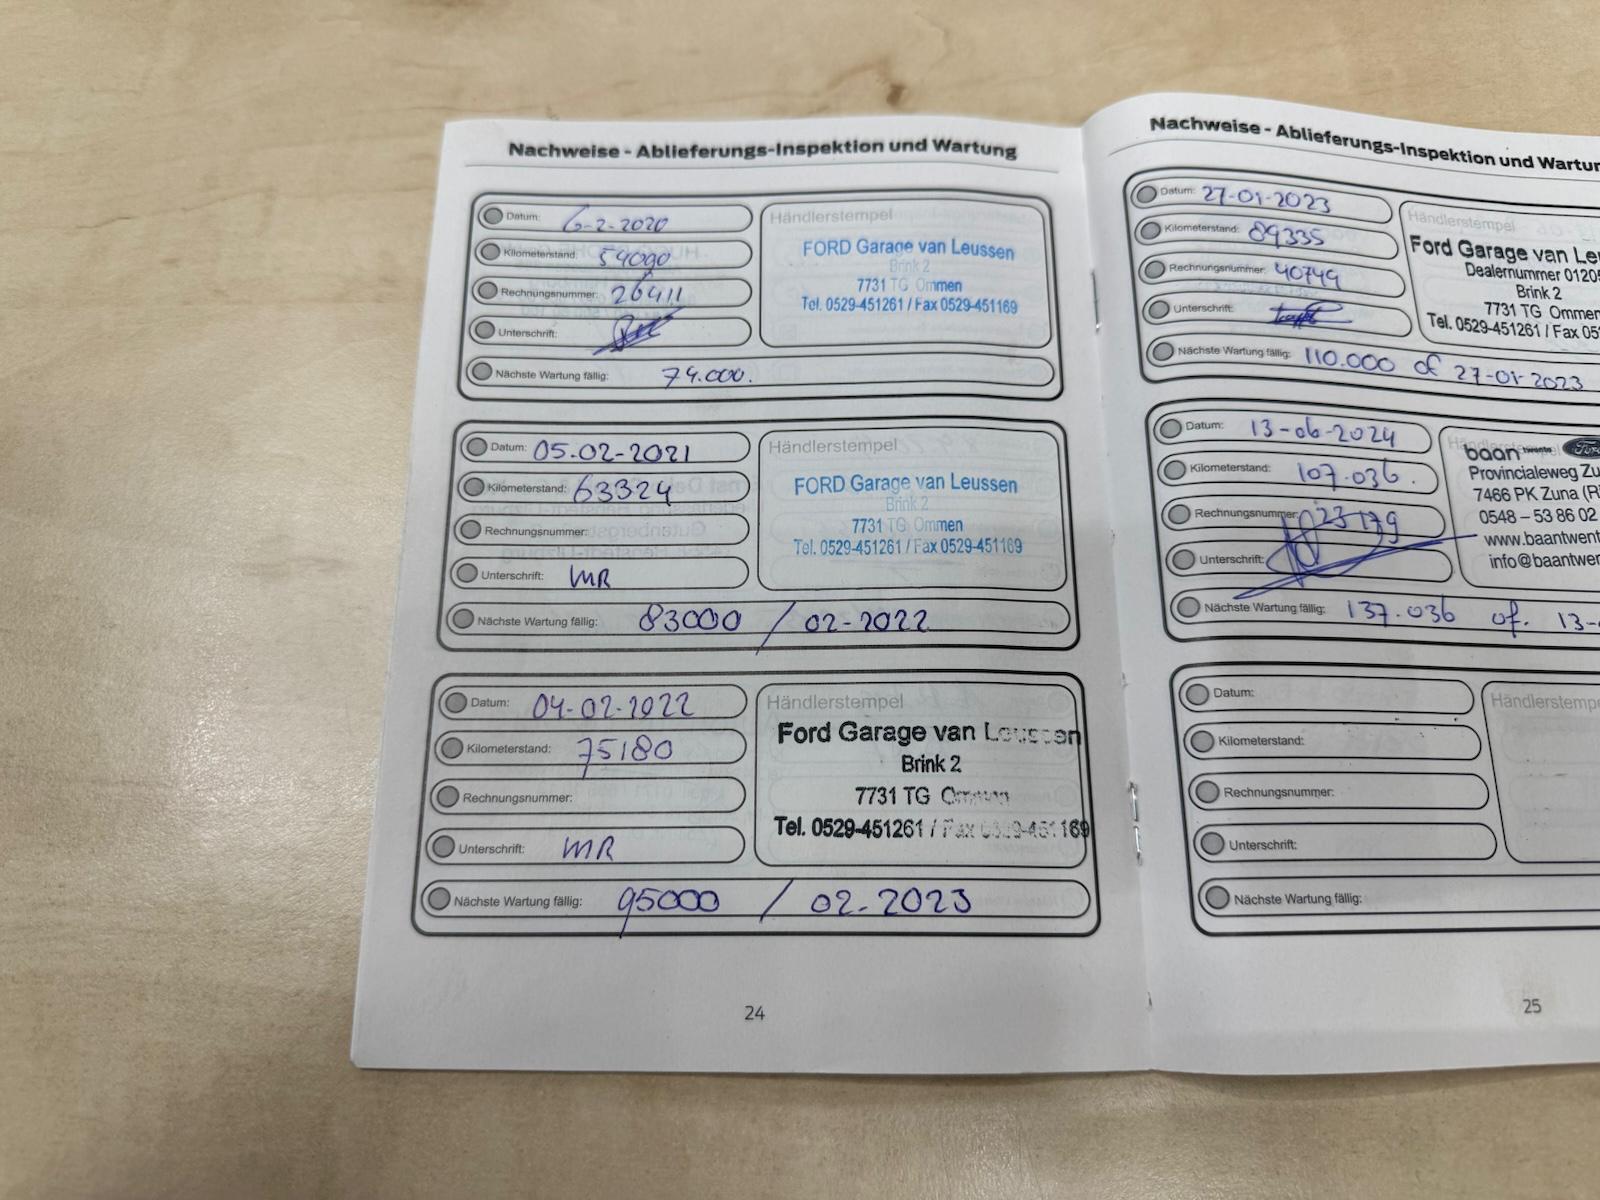 Nachweise - Ablieferungs-Inspektion und Wartung
Datum: 6-2-2020
Kilometerstand: 54090
Rechnungsnummer: 26411
Unterschrift:
Nächste Wartung fällig: 74.000.
Händlerstempel
FORD Garage van Leussen
Brink 2
7731 TG Ommen
Tel. 0529-451261 / Fax 0529-451169
Datum: 05-02-2021
Kilometerstand: 63324
Rechnungsnummer:
Unterschrift: MR
Nächste Wartung fällig: 83000 / 02-2022
Händlerstempel
FORD Garage van Leussen
Brink 2
7731 TG Ommen
Tel. 0529-451261 / Fax 0529-451169
Datum: 04-02-2022
Kilometerstand: 75180
Rechnungsnummer:
Unterschrift: MR
Nächste Wartung fällig: 95000 / 02-2023
Händlerstempel
Ford Garage van Leussen
Brink 2
7731 TG Ommen
Tel. 0529-451261 / Fax 0529-451169
24
Nachweise - Ablieferungs-Inspektion und Wartun
Datum: 27-01-2023
Kilometerstand: 89335
Rechnungsnummer: 40749
Unterschrift:
Nächste Wartung fällig: 110.000 of 27-01-2023
Händlerstempel
Ford Garage van Le
Dealernummer 0120
Brink 2
7731 TG Ommen
Tel. 0529-451261 / Fax 05
Datum: 13-06-2024
Kilometerstand: 107.036.
Rechnungsnummer: 23179
Unterschrift:
Nächste Wartung fällig: 137.036 of. 13-
Händlerstempel
baan twente Ford
Provincialeweg Zu
7466 PK Zuna (R
0548 – 53 86 02
www.baantwent
info@baantwen
Datum:
Kilometerstand:
Rechnungsnummer:
Unterschrift:
Nächste Wartung fällig:
Händlerstempe
25